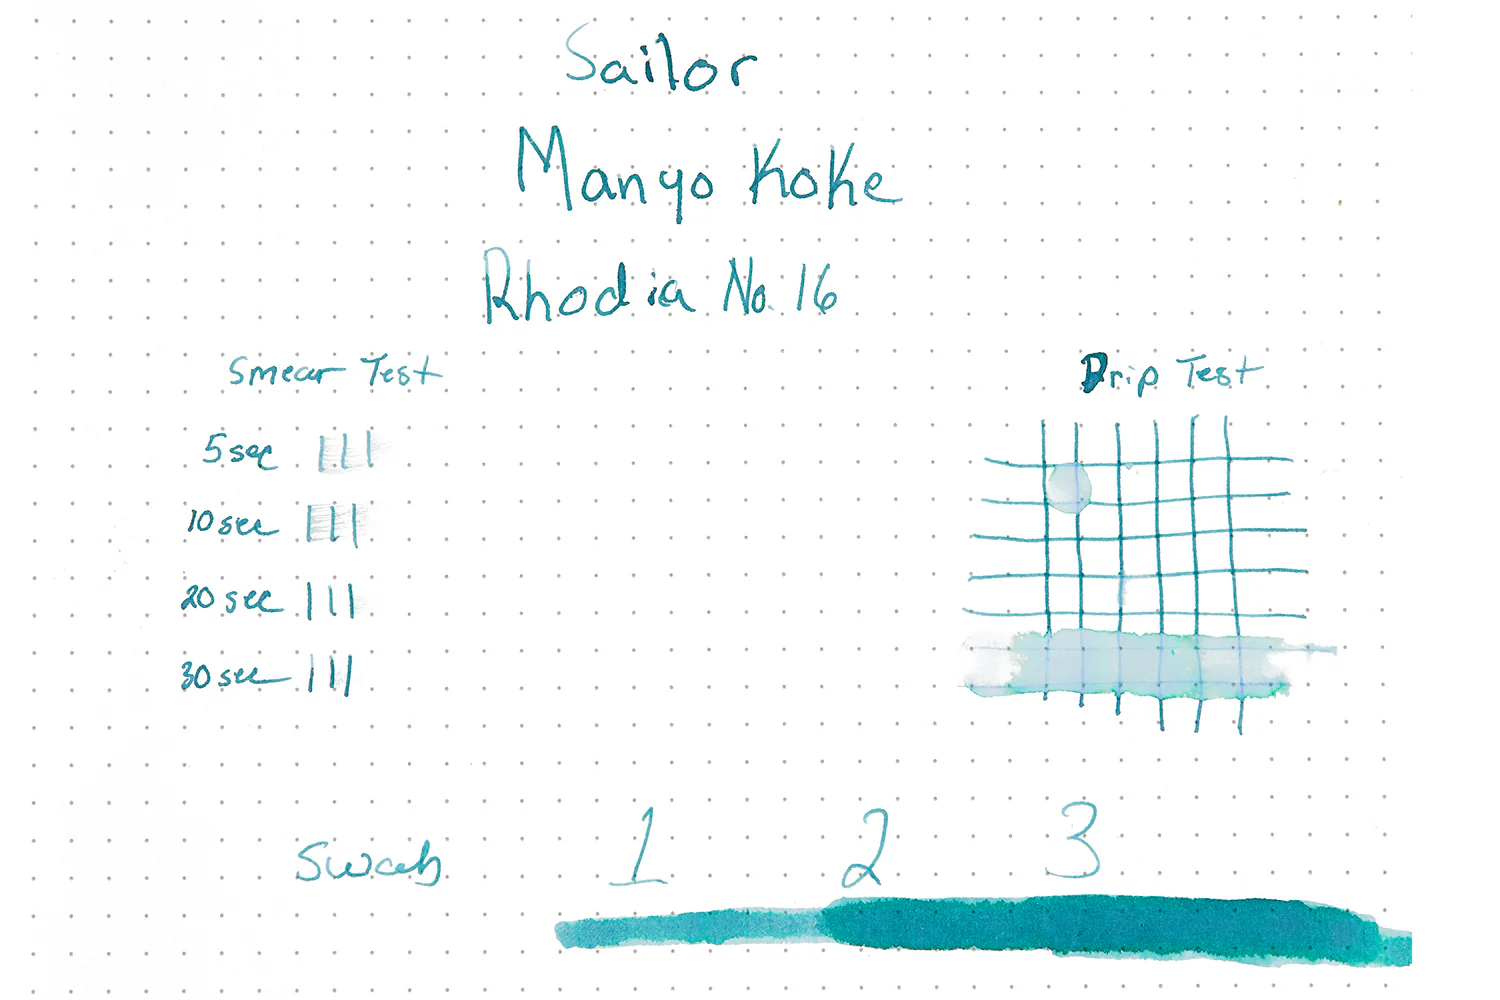 Sailor
Manyo Koke
Rhodia No. 16
Smear Test
Drip Test
5 sec
10 sec
20 sec
30 sec
1 2 3
Swab